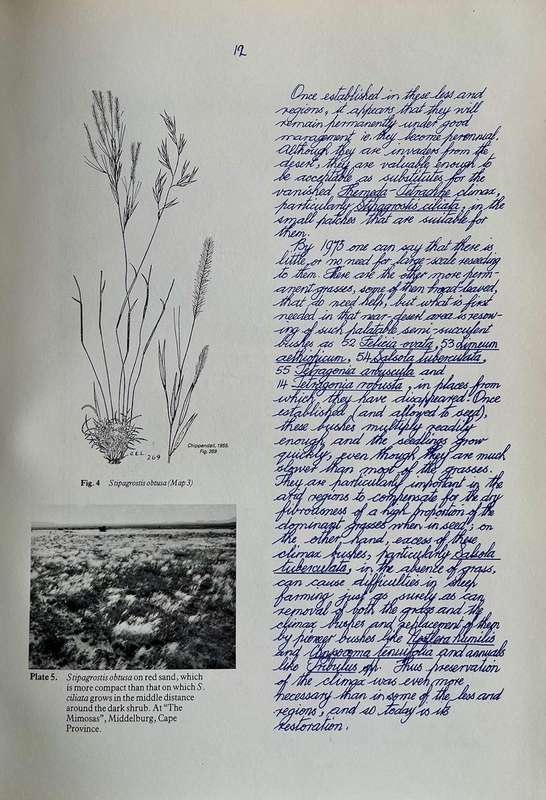 12
Once established in these less arid
regions, it appears that they will
remain permanently under good
management ie. they become perennial.
Although they are invaders from the
desert, they are valuable enough to
be acceptable as substitutes for the
vanished Themeda-Tetrachne climax,
particularly Stipagrostis ciliata, in the
small patches that are suitable for
them.
By 1975 one can say that there is
little or no need for large-scale reseeding
to them. There are the other more perm-
anent grasses, some of them broad-leaved,
that do need help, but what is first
needed in that near-desert area is resow-
ing of such palatable semi-succulent
bushes as 52 Felicia ovata, 53 Limeum
aethiopicum, 54 Salsola tuberculata,
55 Tetragonia arbuscula and
14 Tetragonia robusta, in places from
which they have disappeared. Once
established (and allowed to seed),
these bushes multiply readily
enough, and the seedlings grow
quickly, even though they are much
slower than most of the grasses.
They are particularly important in the
arid regions to compensate for the dry
fibrousness of a high proportion of the
dominant grasses when in seed; on
the other hand, excess of these
climax bushes, particularly Salsola
tuberculata, in the absence of grass,
can cause difficulties in sheep
farming just as surely as can
removal of both the grass and the
climax bushes and replacement of them
by pioneer bushes like humilis
and Chrysocoma tenuifolia and annuals
like Tribulus spp. Thus preservation
of the climax was even more
necessary than in some of the less arid
regions, and so today is its
restoration.
C.E.L. 269
Chippendall, 1955.
Fig. 269
Fig. 4 Stipagrostis obtusa (Map 3)
Plate 5. Stipagrostis obtusa on red sand, which
is more compact than that on which S.
ciliata grows in the middle distance
around the dark shrub. At "The
Mimosas", Middelburg, Cape
Province.